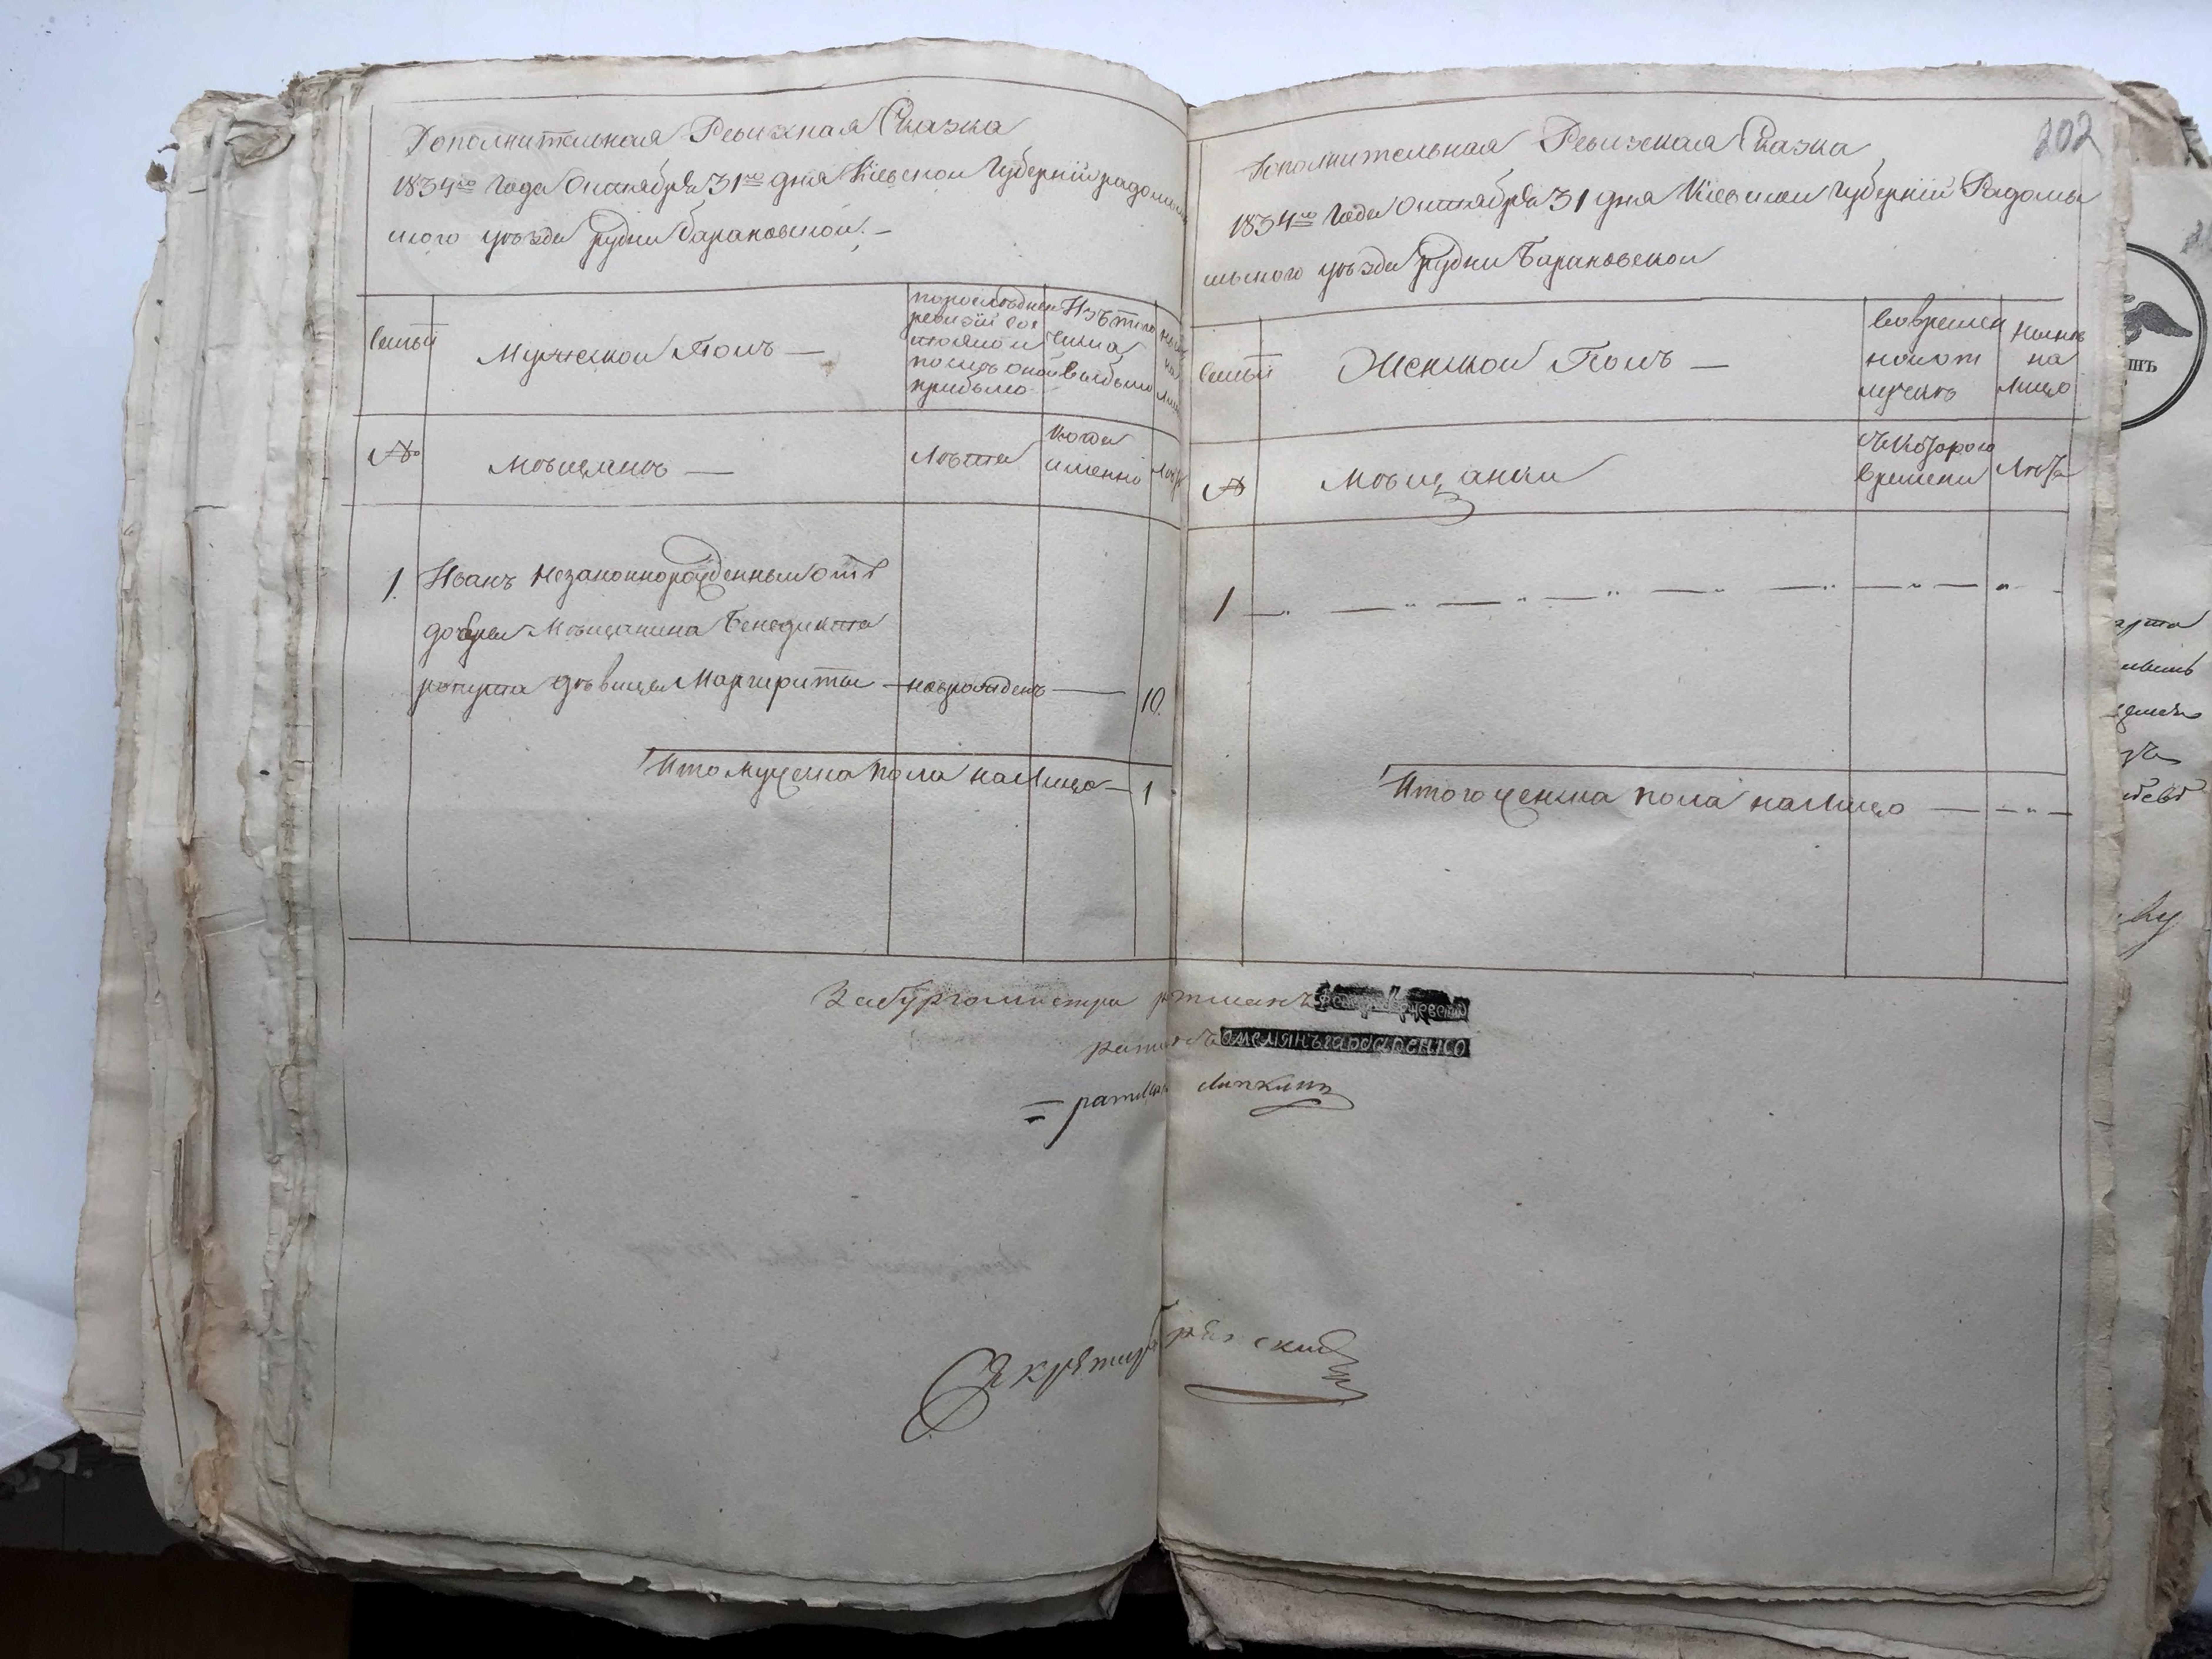 Дополнительная Ревизкая Сказка
1834го Года Октября 31го дня Киевской Губерніи радомы
ского уѣзда рудни барановской. —
Семьи
Мужеской Полъ —
попоследней
ревизіи сос
тояло и
послѣ оной
прибыло
Изъ того
числа
выбыло
на
№
Мѣщанъ —
Лѣта
когда
именно
1. Иванъ незаконнорожденный отъ
дочери Мѣщанина Бенедикта
девицы Маргариты — новрожденъ — 10.
Итого мужеска пола налицо — 1
202
Дополнительная Ревизская Сказка
1834го Года Октября 31 дня Киевской Губерніи Радомы
сльского уѣзда рудни Барановской
Семьи
Женской Полъ —
вовремен
ной от
лучкѣ
нынѣ
на
лицо
№
Мѣщанки
съ которого
времени
Лѣта
1
Итого женска пола налицо
За бургомистра ратманъ
ратманъ Омелянъ гарбаренко
= ратманъ Липкинъ
Секретарь